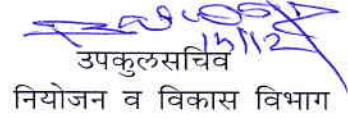 उपकुलसचिव
नियोजन व विकास विभाग